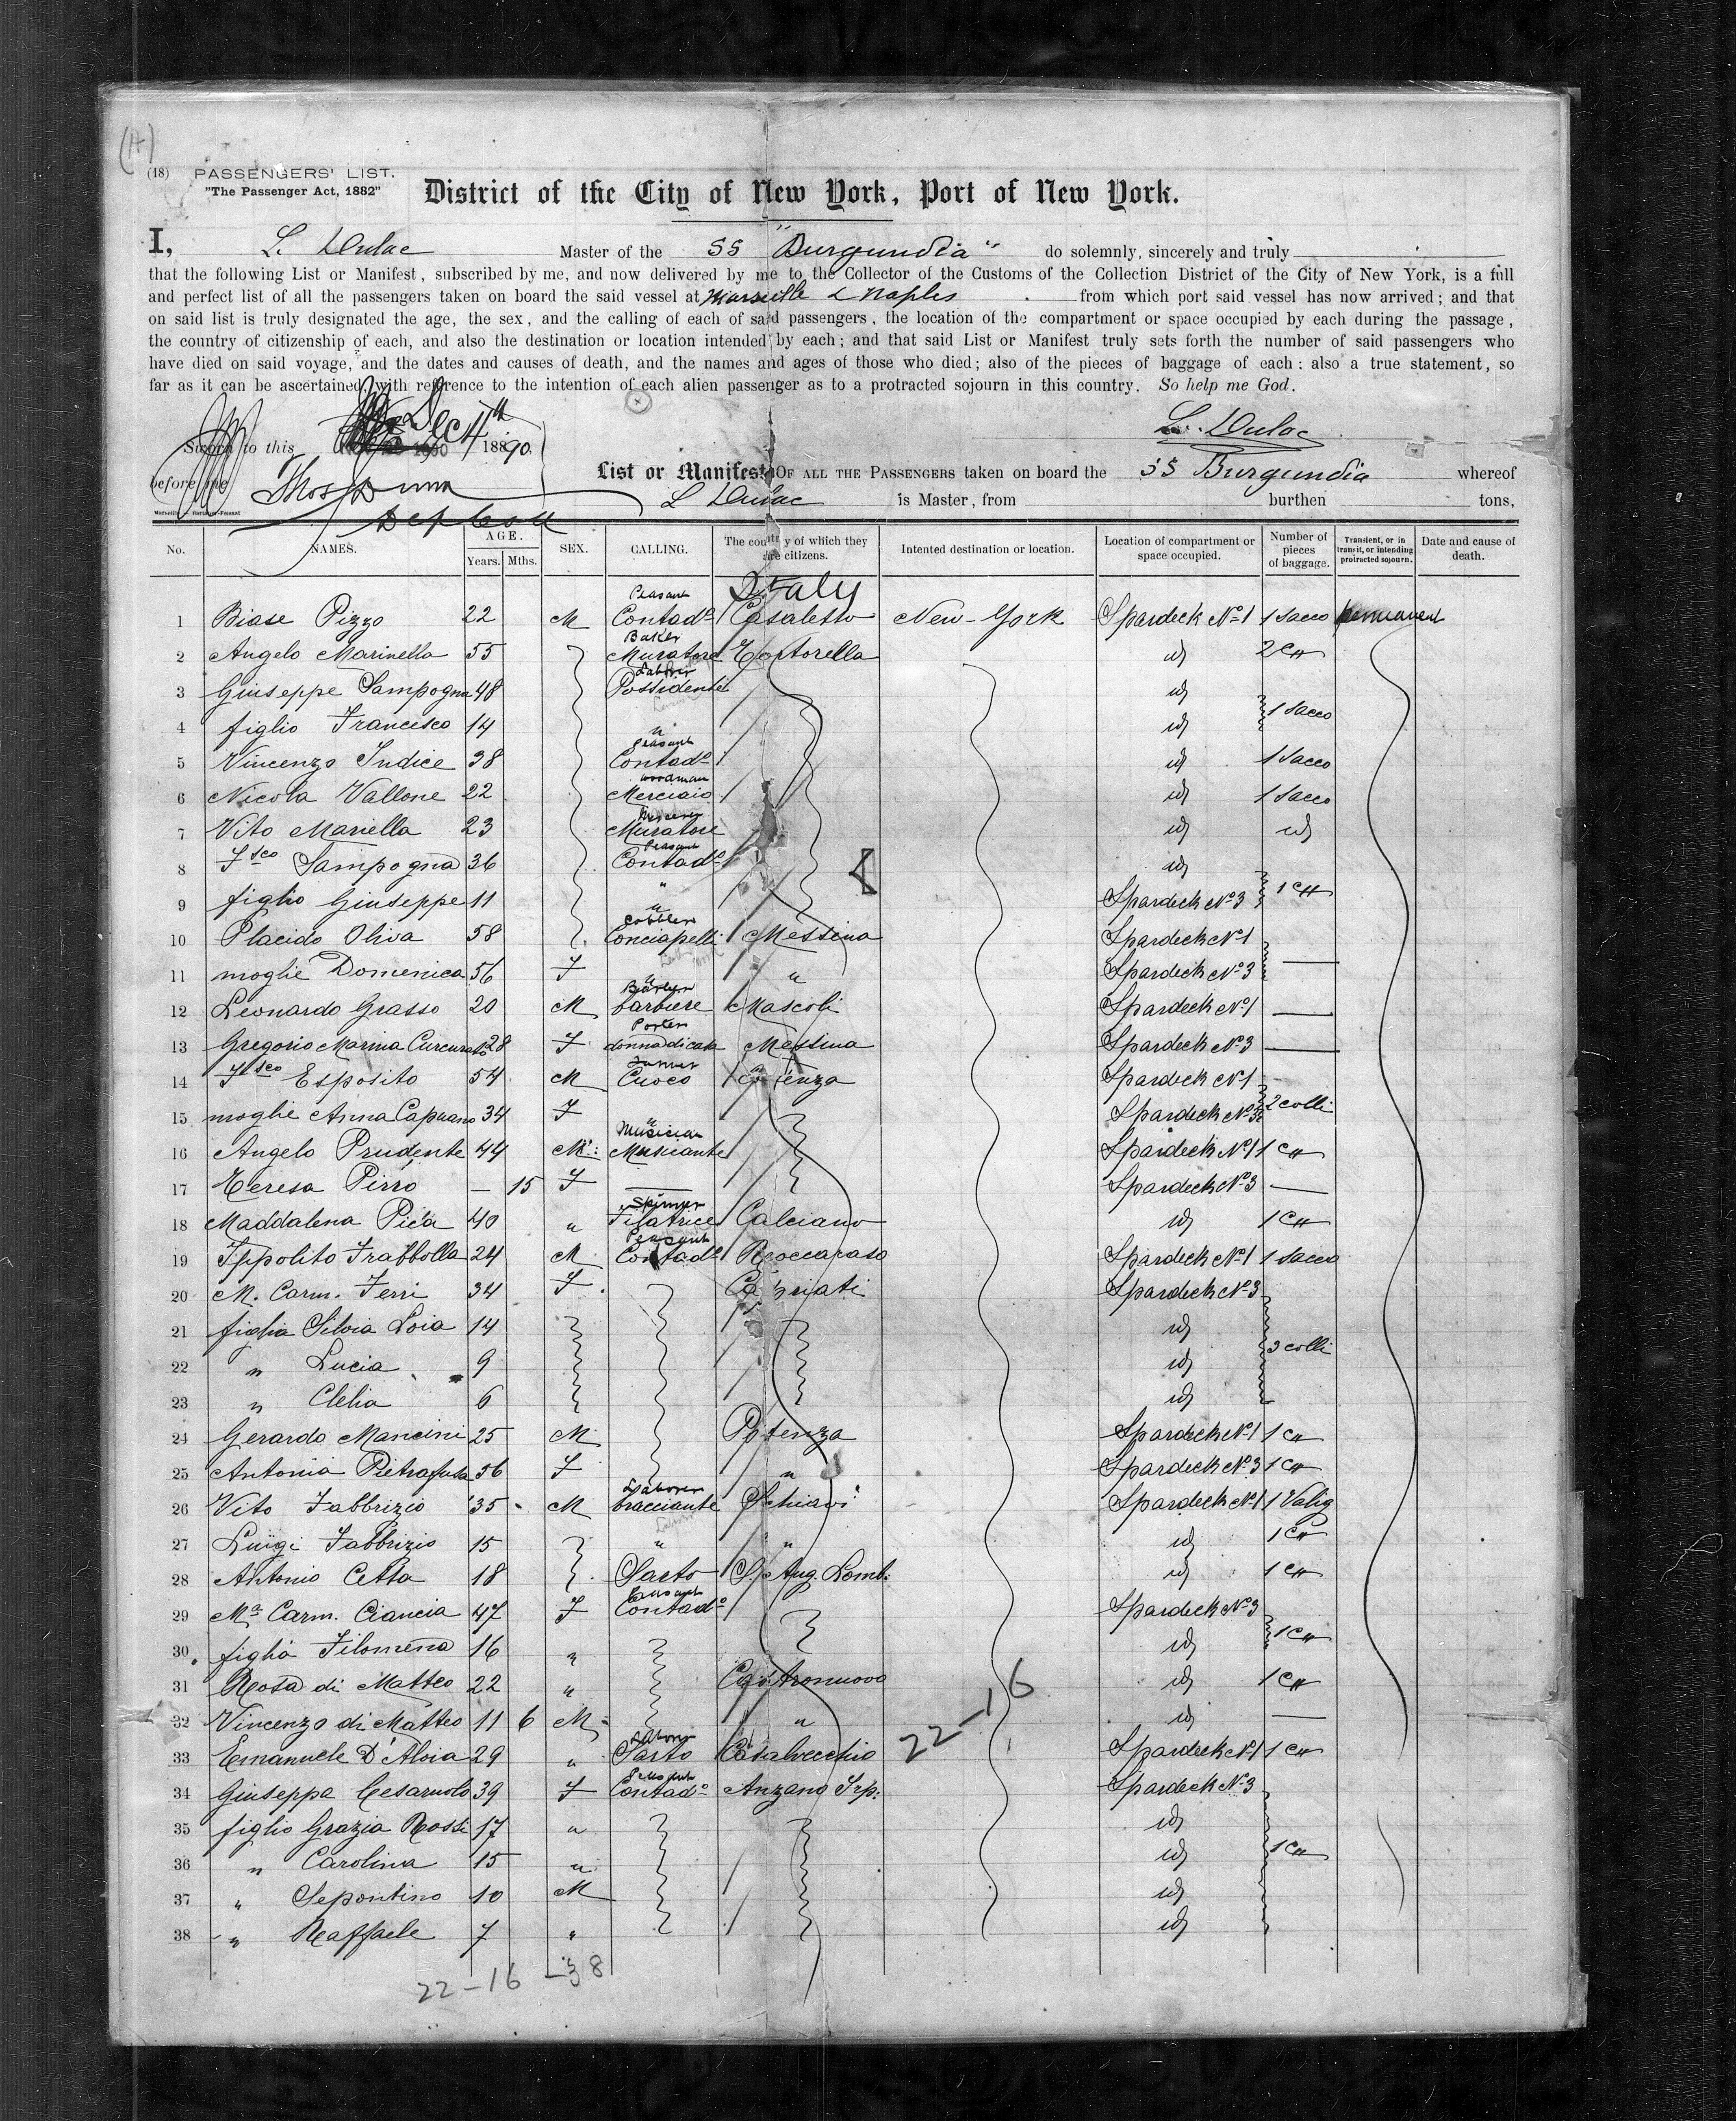 (A)
(18) PASSENGERS' LIST.
"The Passenger Act, 1882"
District of the City of New York, Port of New York.
I, L. Dulac Master of the SS "Burgundia" do solemnly, sincerely and truly
that the following List or Manifest, subscribed by me, and now delivered by me to the Collector of the Customs of the Collection District of the City of New York, is a full
and perfect list of all the passengers taken on board the said vessel at Marseille & Naples from which port said vessel has now arrived; and that
on said list is truly designated the age, the sex, and the calling of each of said passengers, the location of the compartment or space occupied by each during the passage,
the country of citizenship of each, and also the destination or location intended by each; and that said List or Manifest truly sets forth the number of said passengers who
have died on said voyage, and the dates and causes of death, and the names and ages of those who died; also of the pieces of baggage of each: also a true statement, so
far as it can be ascertained, with reference to the intention of each alien passenger as to a protracted sojourn in this country. So help me God.
L. Dulac
Sworn to this Dec 4th 1890.
before me Thos Dunn
Dep Coll
List or Manifest OF ALL THE PASSENGERS taken on board the SS Burgundia whereof
L Dulac is Master, from burthen tons,
No. NAMES. AGE. Years. Mths. SEX. CALLING. The country of which they are citizens. Intented destination or location. Location of compartment or space occupied. Number of pieces of baggage. Transient, or in transit, or intending protracted sojourn. Date and cause of death.
Peasant Italy
1 Biase Pizzo 22 M Contado Casaletto New-York Spardeck No 1 1 Sacco permanent
Baker
2 Angelo Marinella 55 Muratore Tortorella id 2 Ctt
Laborer
3 Giuseppe Sampogna 48 Possidente id
4 figlio Francesco 14 " id 1 Sacco
Peasant
5 Vincenzo Iudice 38 Contado id 1 Sacco
woodman
6 Nicola Vallone 22 Merciaio id 1 Sacco
7 Vito Mariella 23 Muratore id id
Peasant
8 Fsco Sampogna 36 Contado id
9 figlio Giuseppe 11 " Spardeck No 3 1 Ctt
Cobbler
10 Placido Oliva 58 Conciapelli Messina Spardeck No 1
11 moglie Domenica 56 F " " Spardeck No 3 —
Barber
12 Leonardo Grasso 20 M barbiere Mascoli Spardeck No 1 —
Porter
13 Gregorio Marina Curcurato 28 F donna di casa Messina Spardeck No 3 —
14 Fsco Esposito 54 M Cuoco Spardeck No 1
15 moglie Anna Capuano 34 F " Spardeck No 3 2 colli
Musician
16 Angelo Prudente 44 M Musicante Spardeck No 1 1 Ctt
17 Teresa Pirro — 15 F — Spardeck No 3 —
Spinner
18 Maddalena Pica 40 " Filatrice Calciano id 1 Ctt
Peasant
19 Ippolito Frabbolla 24 M Contado Roccaraso Spardeck No 1 1 Sacco
20 M. Carm. Ferri 34 F Spardeck No 3
21 figlia Silvia Loia 14 id
22 " Lucia 9 id 3 colli
23 " Clelia 6 id
24 Gerardo Mancini 25 M Potenza Spardeck No 1 1 Ctt
25 Antonia Pietrafusa 56 F " Spardeck No 3 1 Ctt
Laborer
26 Vito Fabbrizio 35 M bracciante Schiavi Spardeck No 1 1 Valig
27 Luigi Fabbrizio 15 " " id 1 Ctt
28 Antonio Cetta 18 Sarto S. Ang. Lomb. id 1 Ctt
Peasant
29 Ma Carm. Ciancia 47 F Contado Spardeck No 3
30 figlia Filomena 16 " id 1 Ctt
31 Rosa di Matteo 22 " Castronuovo id 1 Ctt
32 Vincenzo di Matteo 11 6 M " id —
22-16
Laborer
33 Emanuele D'Aloia 29 " Sarto Casalvecchio Spardeck No 1 1 Ctt
Peasant
34 Giuseppa Cesaruolo 39 F Contado Anzano Irp. Spardeck No 3
35 figlio Grazia Rossi 17 " id
36 " Carolina 15 " id 1 Ctt
37 " Sepontino 10 M id
38 " Raffaele 7 " id
22-16-38